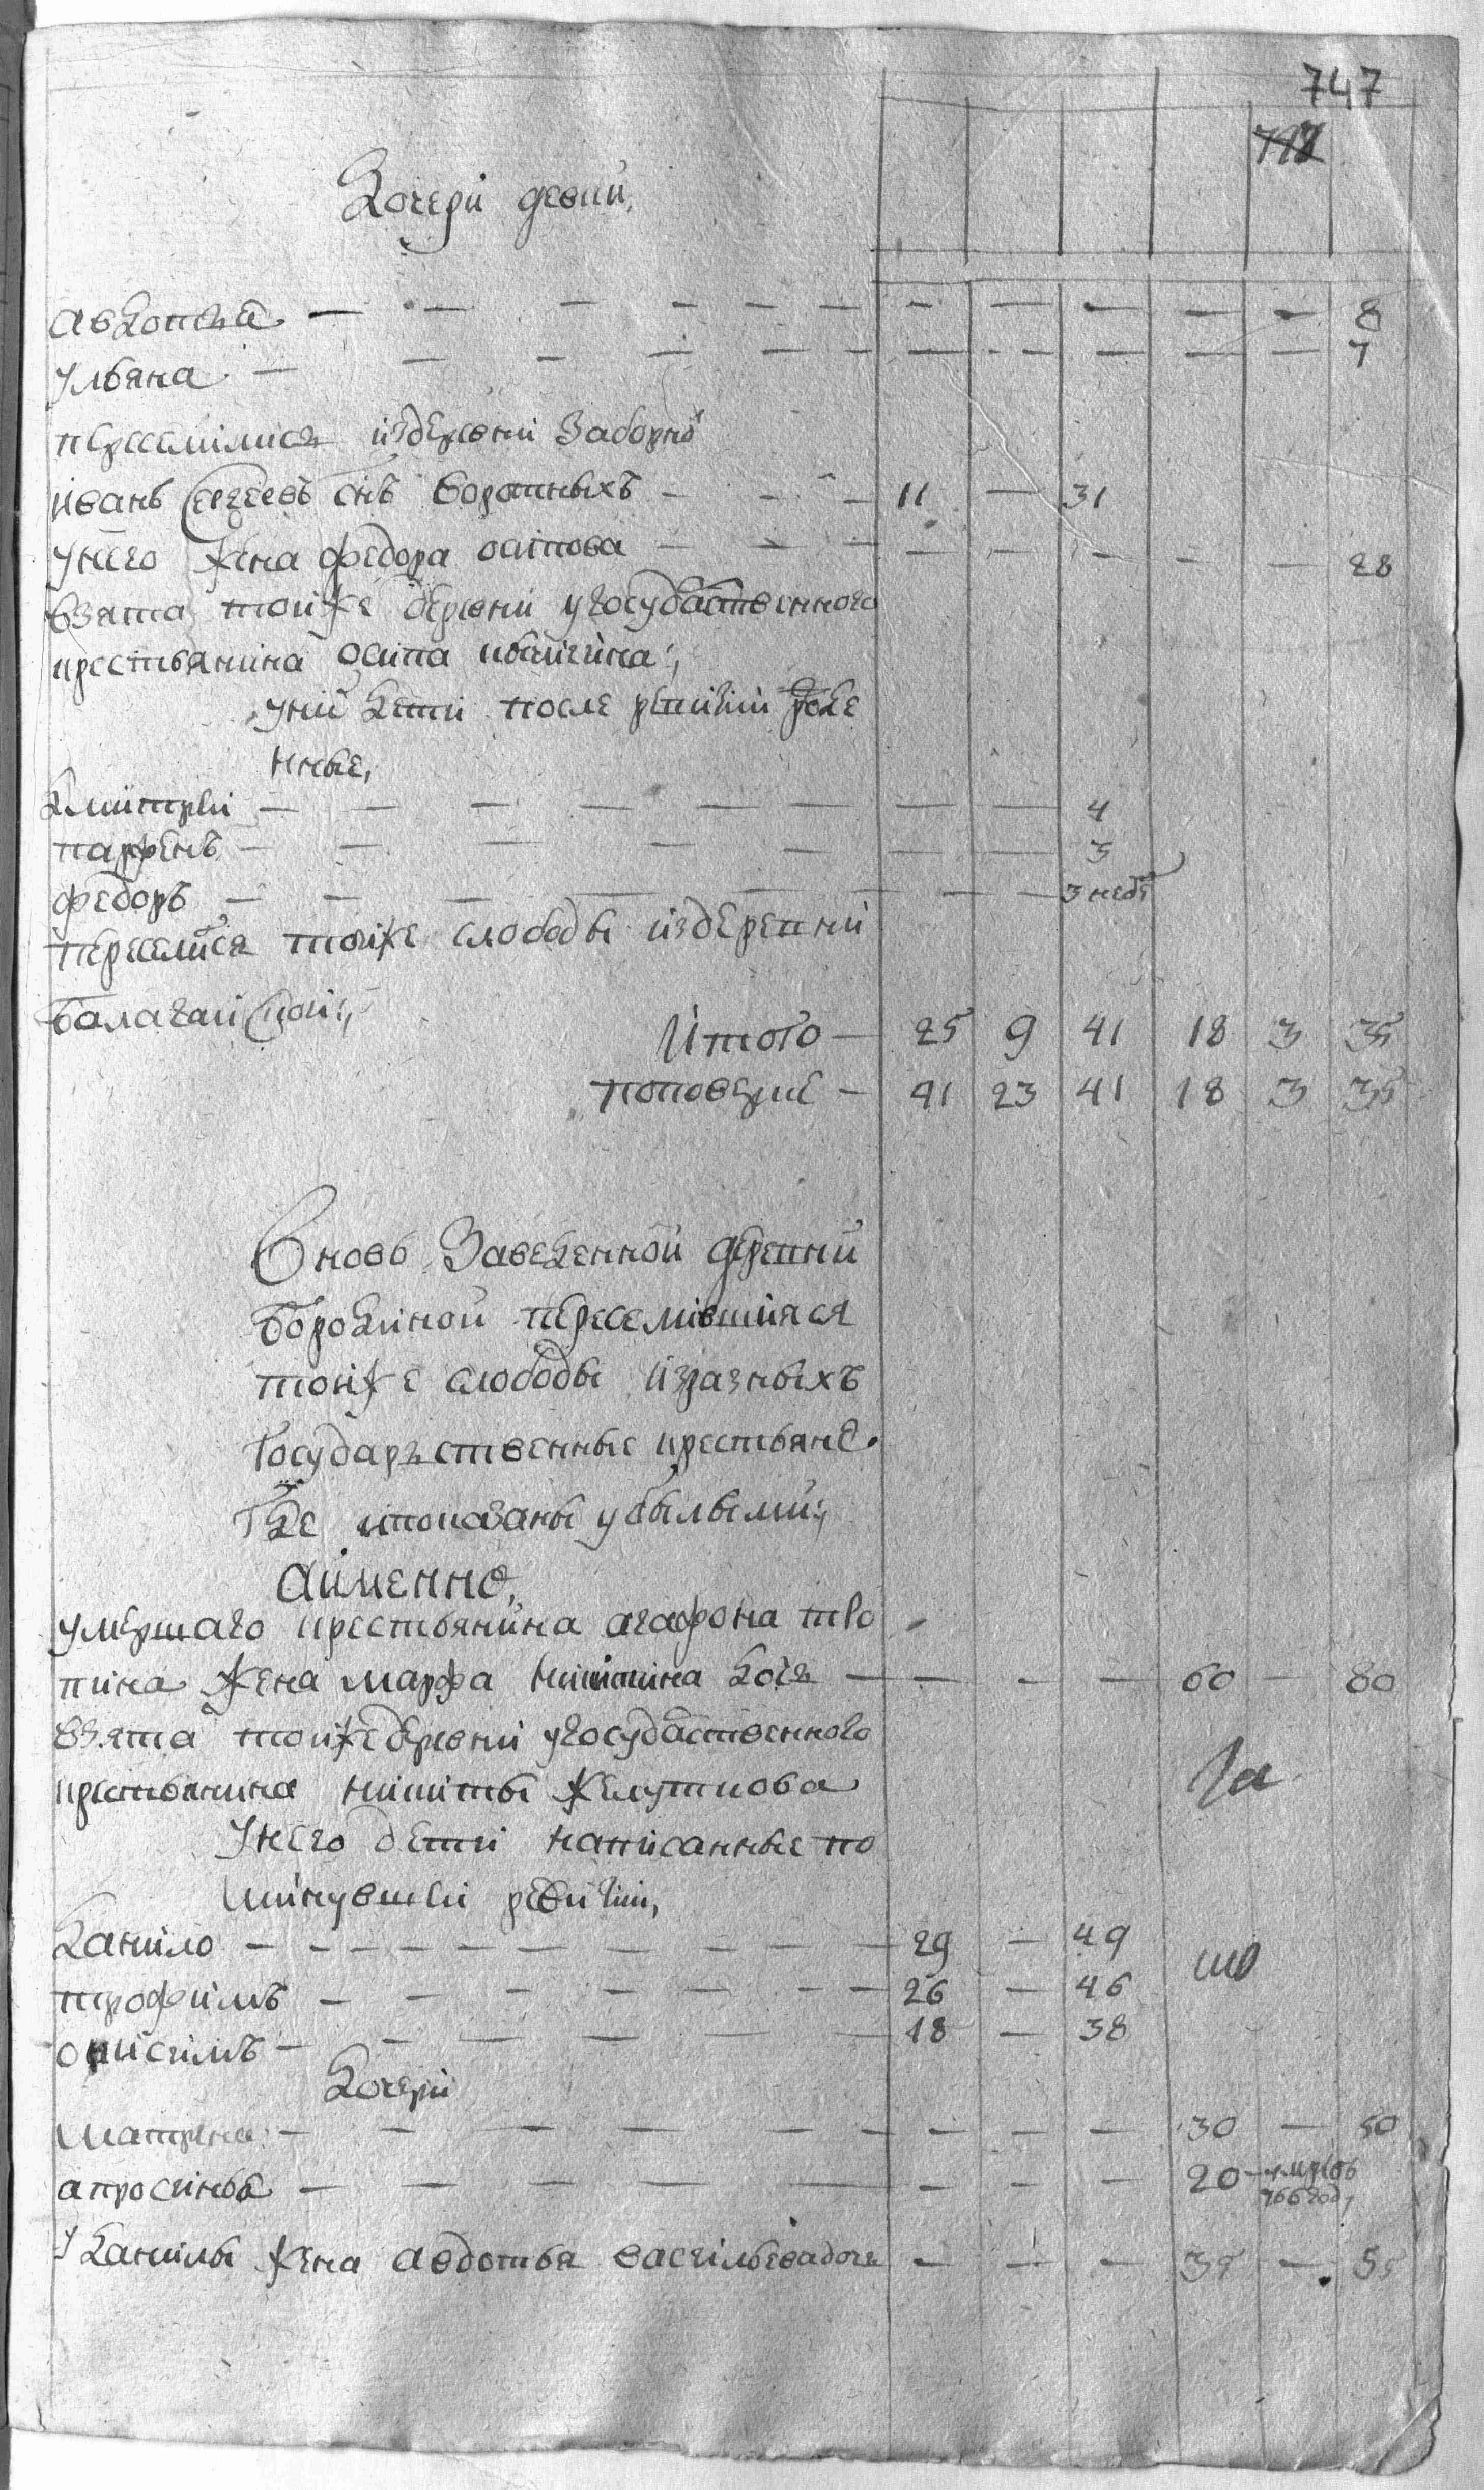 747
Дочери девки,
авдотья — — — — — — — — — — — 8
ульяна — — — — — — — — — — — 7
переселился издеревни Заборно
иванъ Сергеевъ снъ воротныхъ — — — 11 — 31
унего жена федора осипова — — — — — — — 28
взята тойже деревни угосударственного
крестьянина осипа
уних дети после ревизии рожде
нные,
дмитреи — — — — — — — — 4
парфенъ — — — — — — — — 3
федоръ — — — — — — — — 3 недѣ
переселился тойже слободы издеревни
балаганской
Итого — 25 9 41 18 3 35
поповерке — 91 23 41 18 3 35
Вновь Заведенной деревни
бородиной переселившияся
тойже слободы изразныхъ
Государственные крестьяне
где ипоказаны убылыми
аименно,
умершаго крестьянина агафона тю
пина жена марфа никитина дочь — — — — 60 — 80
взята тойже деревни угосударственного
крестьянина никиты желуткова
Унего дети написанные по
минувшеи ревизии,
данило — — — — — — — 29 — 49
трофимъ — — — — — — 26 — 46
онисимъ — — — — — 18 — 38
Дочери
матрена — — — — — — — — — 30 — 50
апросинья — — — — — — — — 20 — умре въ
766 году
У данилы жена авдотья васильева дочь — — — 35 — 55